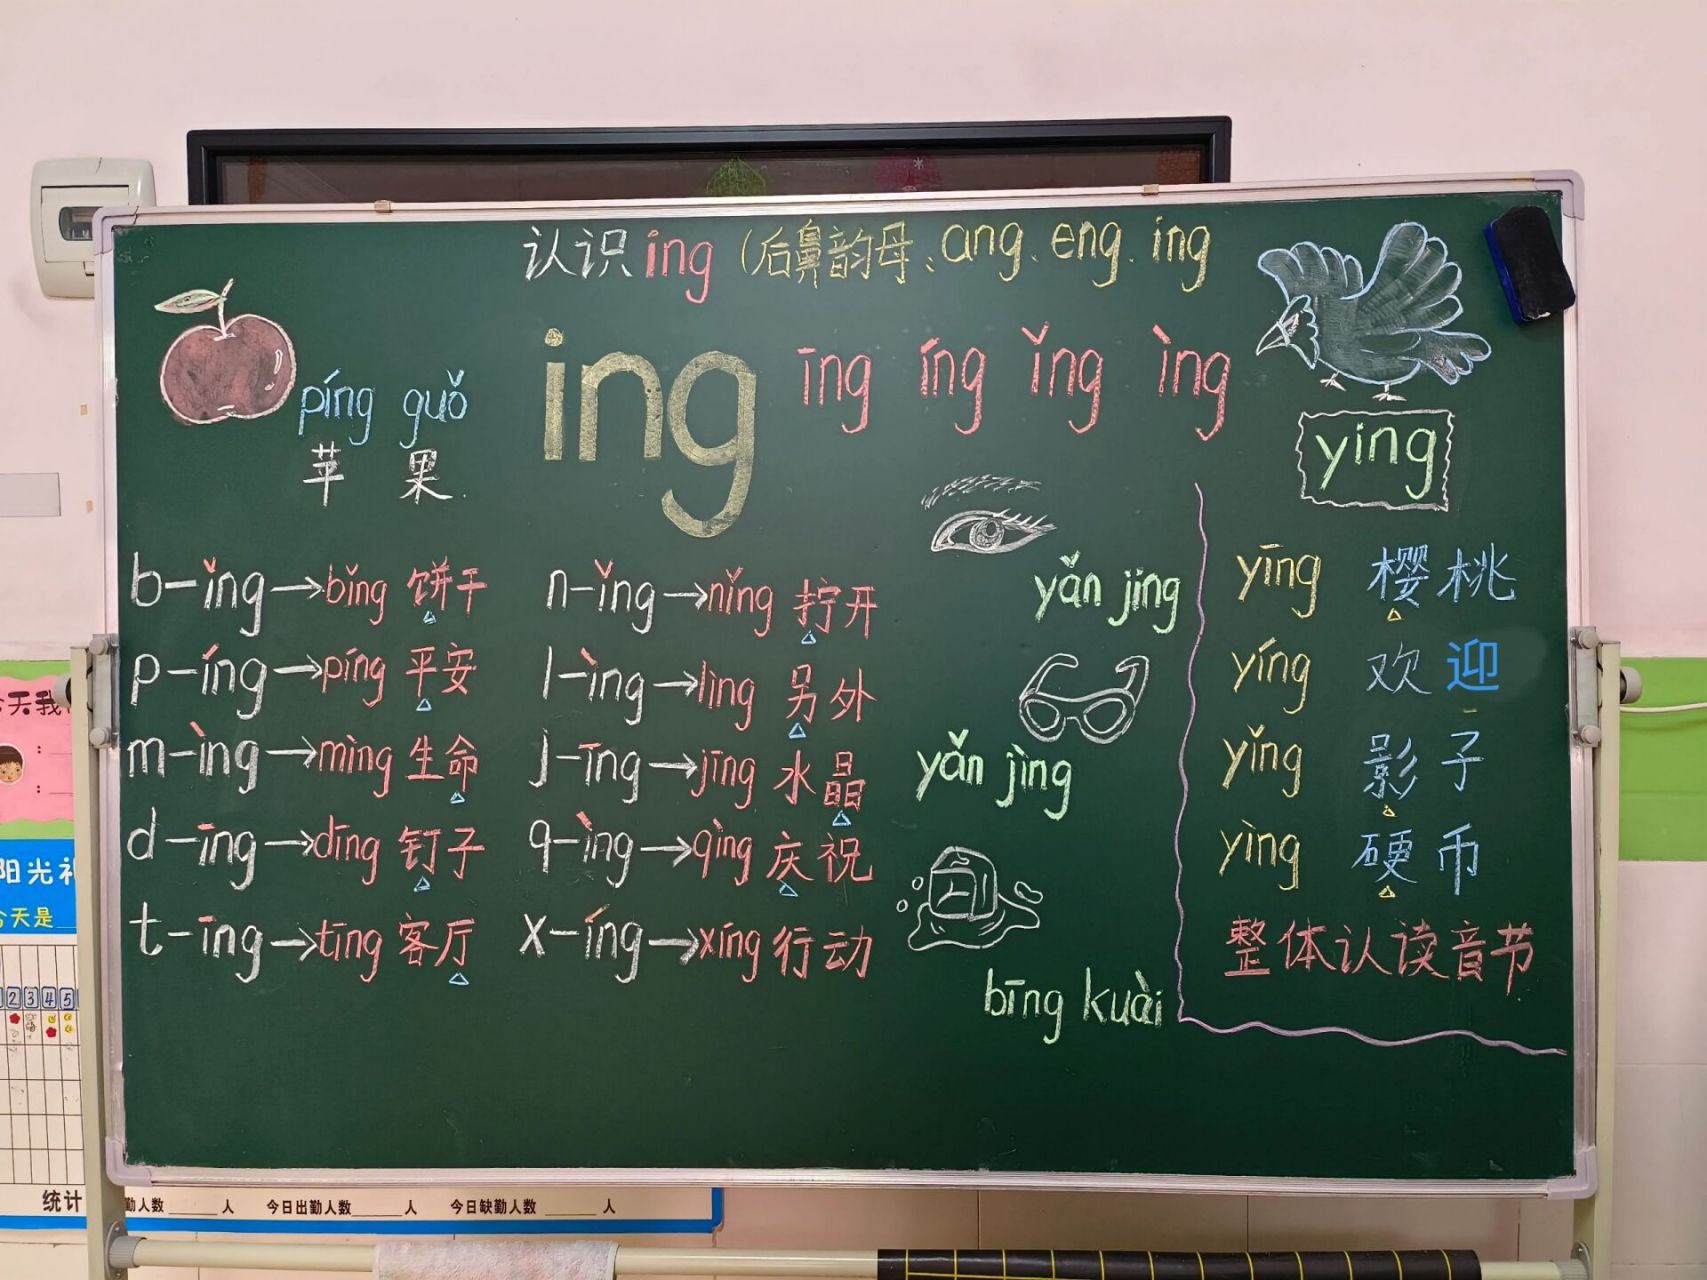 认识 ing (后鼻韵母、ang、eng、ing
ing īng íng ǐng ìng
píng guǒ
苹果
ying
b-ǐng→bǐng 饼干
p-íng→píng 平安
m-ìng→mìng 生命
d-īng→dīng 钉子
t-īng→tīng 客厅
n-ǐng→nǐng 拧开
l-ìng→lìng 另外
j-īng→jīng 水晶
q-ìng→qìng 庆祝
x-íng→xíng 行动
yǎn jing
yǎn jìng
bīng kuài
yīng 樱桃
yíng 欢迎
yǐng 影子
yìng 硬币
整体认读音节
今天我
:
:
阳光礼
今天是
2 3 4 5
统计 勤人数 人 今日出勤人数 人 今日缺勤人数 人